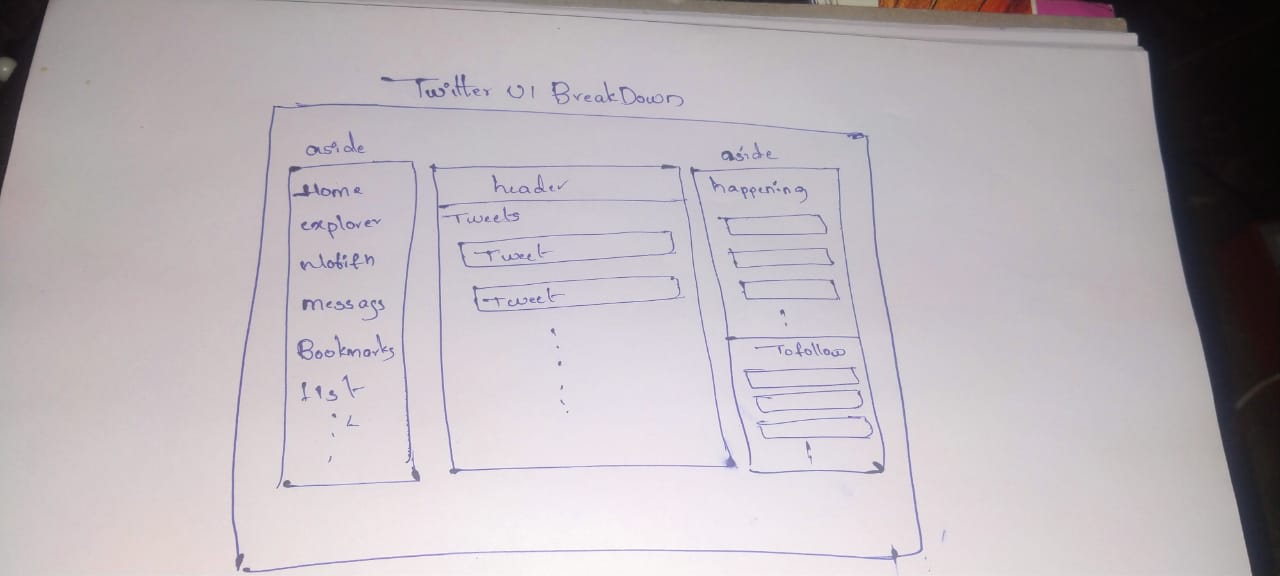 Twitter UI BreakDown
aside
Home
explorer
Notifn
message
Bookmarks
list
header
Tweets
Tweet
Tweet
aside
happening
To follow